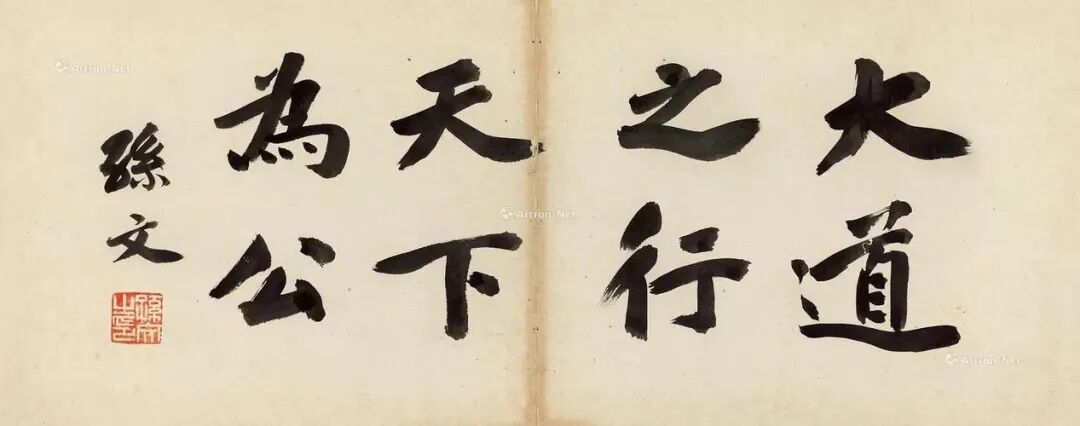 大道
之行
天下
為公
孫文
孫文之印
Artron.Net
Artron.Net
Artron.Net